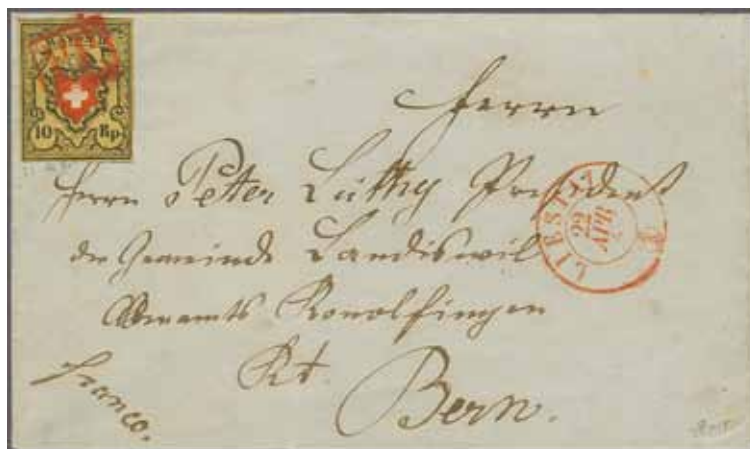 RAYON II
10 Rp.
Herrn
Herrn Peter Lüthy President
der Gemeinde Landiswil
Oberamts Konolfingen
Kt.
Bern.
franco.
LIESTAL
22
APR